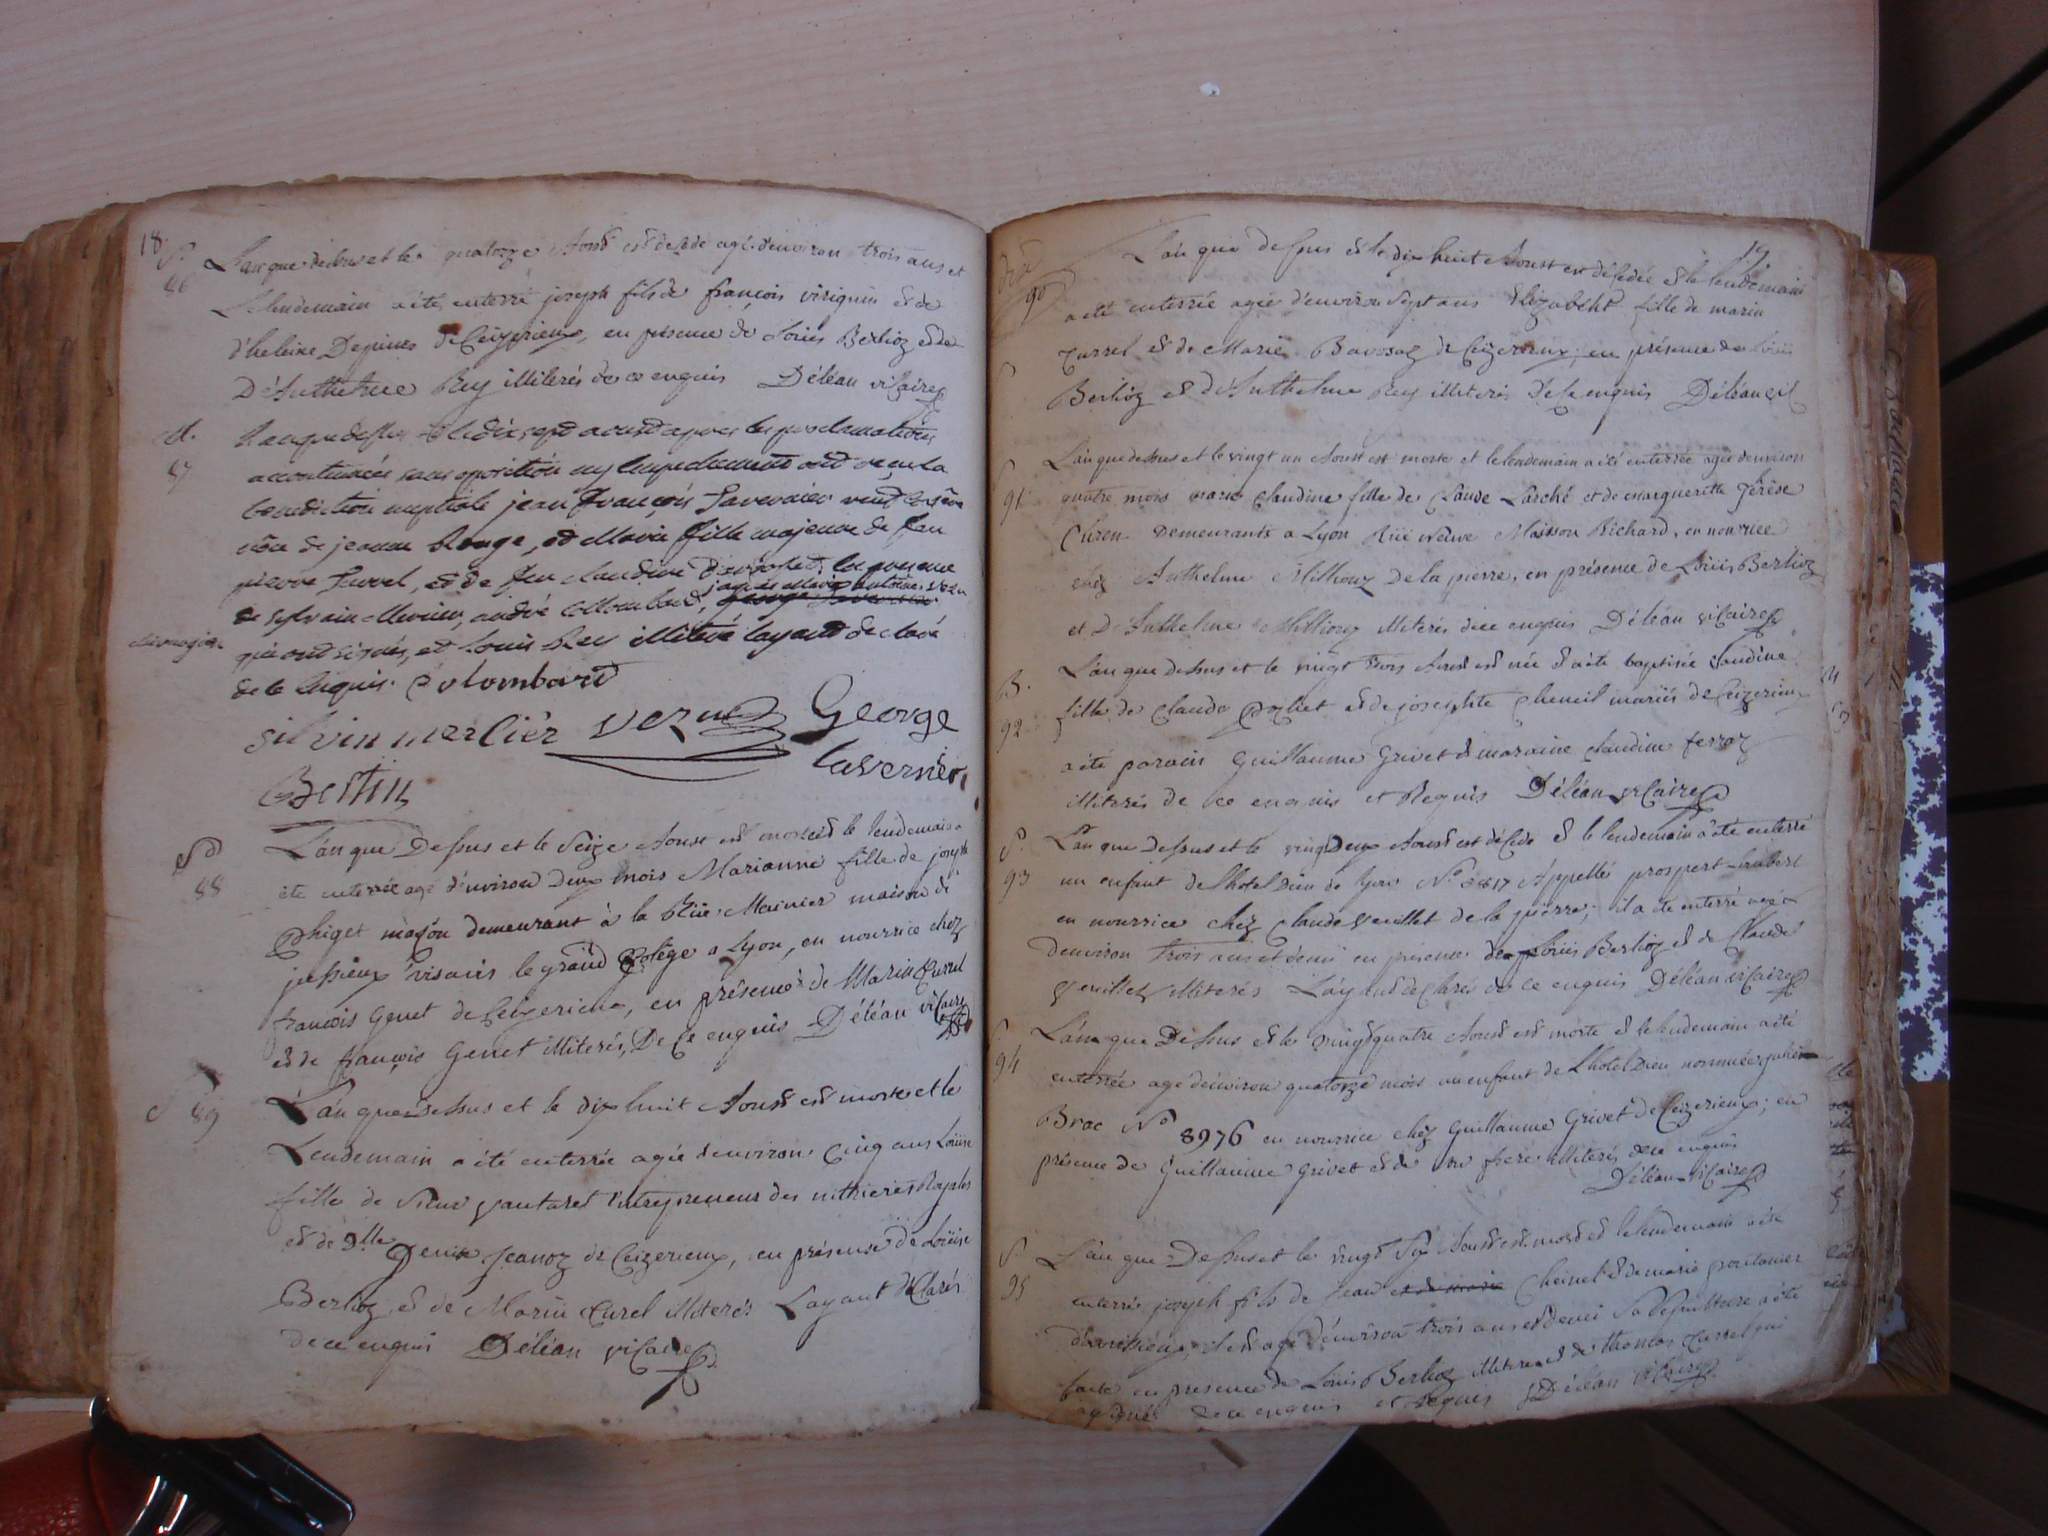 18
S.
86
L'an que dessus et le quatorze Aoust est décédé agé d'environ trois ans et
Lendemain a été enterré joseph fils de françois virignin et de
d'heleine Depines de Ceizerieux, en présence de Loüis Berlioz et de
D'Anthelme Rey illiterés de ce enquis Déléan vicaire
M.
87
L'an que dessus et le dix sept aoust apres les proclamations
accoutumées sans oposition ny Empechement ont reçu la
benediction nuptiale jean François Tavernier veuf
de jeanne Rouge, et Marie fille majeure de feu
pierre Turrel, et de feu claudine en presence
jacques marie antoine vezu
de sylvain Mercier, andré Collombard, George Tavernier
qui ont signés, et Louis Rey illiteré layant declaré
de le Enquis. Colombard
silvin merlier vezu George
tavernier
Bertin
Sd
88
L'an que Dessus et le Seize Aoust est morte et le lendemain a
été enterrée agé d'environ Deux mois Marianne fille de joseph
Phiget maçon demeurant à la Rüe Mainier maison de
jussieux visavis le grand Colége a Lyon, en nourrice chez
françois Genet de Ceizerieux, en présence de Marin Currel
et de françois Genet illiterés, De ce enquis Déléan vicaire
S 89
L'an que dessus et le dix huit Aoust est morte et le
Lendemain a été enterrée agée d'environ Cinq ans Loüise
fille de Sieur vautaret Entrepreneur des nithrieres Royales
et de Dlle Denise Jeanoz de Ceizerieux, en présence de Loüis
Berlioz et de Marin Curel illiterés Layant déClarés
de ce enquis Déléan vicaire
19
90
L'an que dessus et le dix huit Aoust est décédée et le lendemain
a été enterrée agée d'environ sept ans Elizabeht fille de marin
Currel et de Marie Bavosaz de Ceizerieux; en présence de Loüis
Berlioz et d'Anthelme Rey illiterés de ce enquis Déléan vic
S
91
L'an que dessus et le vingt un Aoust est morte et le lendemain a été enterrée agée denviron
quatre mois marie Claudine fille de Claude Larché et de marguerithe Térèse
Curen Demeurants a Lyon Rüe Neuve Maisson Richard, en nourrice
chez Anthelme Milhoux De la pierre, en présence de Loüis Berlioz
et D'Anthelme Millioux illiterés de ce enquis Déléan vicaire
B.
92
L'an que dessus et le vingt trois Aoust est née et a été baptisée Claudine
fille de Claude Pochet et de josephte Cheneil mariés de Ceizerieux
a été parain Guillaume Grivet et maraine claudine ferroz
illiterés de ce enquis et Requis Déléan vicaire
S.
93
L'an que dessus et le vingt Deux Aoust est décédé et le lendemain a été enterré
un enfant de l'hotel Dieu de lyon Appellé prospert
en nourrice chez Claude veuillet de la pierre; il a été enterré agé
denviron trois ans et demi en présence de Loüis Berlioz et de Claude
veuillet illiterés Layant déClarés de ce enquis Déléan vicaire
S.
94
L'an que Dessus et le vingt quatre Aoust est morte et le lendemain a été
enterrée agé d'environ quatorze mois un enfant de L'hotel Dieu nommée julie
Brac N° 8976 en nourrice chez Guillaume Grivet de Ceizerieux; en
présence de Guillaume Grivet et de son frere illiterés de ce enquis
Déléan vicaire
S
95
L'an que Dessus et le vingt Six Aoust est mort et le lendemain a été
enterré joseph fils de Jean et de marie Cheinel et de marie pontanier
il est agé d'environ trois ans et demi Sa Sepulture a été
faite en presence de Loüis Berlioz illiteré et de thomas Currel qui
a signé de ce enquis et Requis Déléan vicaire